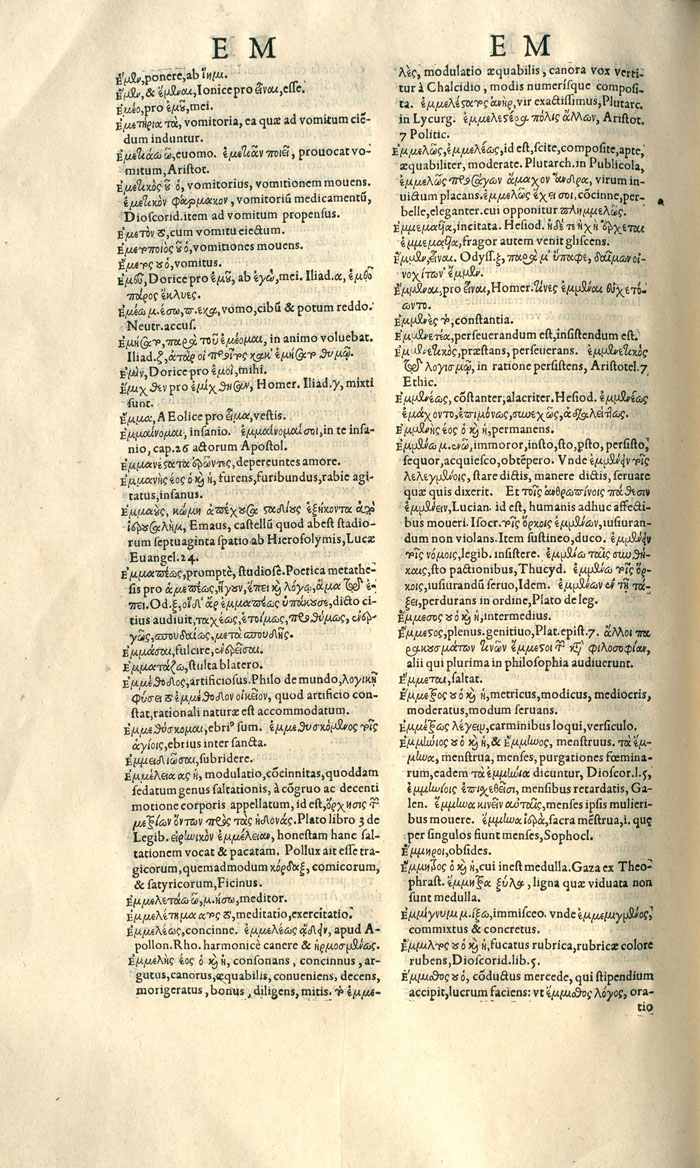 E M
Ἐμῦν, ponere, ab ἵημι.
Ἐμῦν, & ἔμῦναι, Ionice pro εἶναι, esse.
Ἐμέο, pro ἐμοῦ, mei.
Ἐμετήρια τὰ, vomitoria, ea quæ ad vomitum ciē-
dum induntur.
Ἐμετιάω ῶ, euomo. ἐμετιᾶν ποιεῖ, prouocat vo-
mitum, Aristot.
Ἐμετικὸς οῦ ὁ, vomitorius, vomitionem mouens.
ἐμετικὸν φάρμακον, vomitoriū medicamentū,
Dioscorid. item ad vomitum propensus.
Ἐμετὸν οῦ, cum vomitu eiectum.
Ἐμετοποιὸς οῦ ὁ, vomitiones mouens.
Ἔμετος ου ὁ, vomitus.
Dorice pro ἐμοῦ, ab ἐγὼ, mei. Iliad. α,
πάρος ἔκλυες.
Ἐμέω μ. έσω, π. εκα, vomo, cibū & potum reddo.
Neutr. accus.
παρὰ τοῦ in animo voluebat.
Iliad.
Ἐμὶν, Dorice pro ἐμοὶ, mihi.
Ἔμιχθεν pro ἐμίχθησαν, Homer. Iliad. γ, mixti
sunt.
Ἔμμα, AEolice pro εἷμα, vestis.
Ἐμμαίνομαι, insanio. ἐμμαινομαί σοι, in te insa-
nio, cap. 26 actorum Apostol.
Ἐμμανέστατα ἐρῶντες, depereuntes amore.
Ἐμμανὴς έος ὁ καὶ ἡ, furens, furibundus, rabie agi-
tatus, insanus.
Ἐμμαοὺς, κώμη ἀπέχουσα σταδίους ἑξήκοντα ἀπὸ
ἱερουσαλὴμ, Emaus, castellū quod abest stadio-
rum septuaginta spatio ab Hierosolymis, Lucæ
Euangel. 24.
Ἐμμαπέως, promptè, studiosè. Poetica metathe-
sis pro
πει. Od. ξ, ὁ δ' ἄρ ἐμμαπέως ὑπάκουσε, dicto ci-
tius audiuit, ταχέως, ἑτοίμως, προθύμως,
σπουδαίως, μετὰ σπουδῆς.
Ἐμμάσαι, fulcire, ἐνερεῖσαι.
Ἐμματάζω, stulta blatero.
Ἐμμέθοδος, artificiosus. Philo de mundo, λογικῇ
φύσει τὸ ἐμμέθοδον οἰκεῖον, quod artificio con-
stat, rationali naturæ est accommodatum.
Ἐμμεθύσκομαι, ebri⁹ sum. ἐμμεθυσκόμενος τοῖς
ἁγίοις, ebrius inter sancta.
Ἐμμειδιῶσαι, subridere.
Ἐμμέλεια ας ἡ, modulatio, cōcinnitas, quoddam
sedatum genus saltationis, à cōgruo ac decenti
motione corporis appellatum, id est, ὄρχησις τῶν
μετρίων ὄντων πρὸς τὰς ἡδονάς. Plato libro 3 de
Legib. εἰρηνικὸν ἐμμέλειαν, honestam hanc sal-
tationem vocat & pacatam. Pollux ait esse tra-
gicorum, quemadmodum κόρδαξ, comicorum,
& satyricorum, Ficinus.
Ἐμμελετάω ῶ, μ. ήσω, meditor.
Ἐμμελέτημα ατος τὸ, meditatio, exercitatio.
Ἐμμελέως, concinne. ἐμμελέως apud A-
pollon. Rho. harmonicè canere & ἡρμοσμένως.
Ἐμμελὴς έος ὁ καὶ ἡ, consonans, concinnus, ar-
gutus, canorus, æquabilis, conueniens, decens,
morigeratus, bonus, diligens, mitis. τὸ ἐμμε-
E M
λὲς, modulatio æquabilis, canora vox verti-
tur à Chalcidio, modis numerisque composi-
ta. ἐμμελέστατος ἀνὴρ, vir exactissimus, Plutarc.
in Lycurg. ἐμμελεστέρα πόλις ἄλλων, Aristot.
7 Politic.
Ἐμμελῶς, ἐμμελέως, id est, scite, composite, apte,
æquabiliter, moderate. Plutarch. in Publicola,
ἐμμελῶς ἄμαχον ἄνδρα, virum in-
uictum placans. ἐμμελῶς ἔχει σοι, cōcinne, per-
belle, eleganter. cui opponitur πλημμελῶς.
Ἐμμεμαῦα, incitata. Hesiod.
ἐμμεμαῦα, fragor autem venit gliscens.
Ἐμμῦν, εἶναι. Odyss. ξ,
Ἔμμῦναι, pro εἶναι, Homer.
Ἐμμενὲς τὸ, constantia.
Ἐμμενετέα, perseuerandum est, insistendum est.
Ἐμμενετικὸς, præstans, perseuerans. ἐμμενετικὸς
τῷ λογισμῷ, in ratione persistens, Aristotel. 7
Ethic.
Ἐμμενέως, cōstanter, alacriter. Hesiod. ἐμμενέως
ἐμάχοντο, ἐπιμόνως, συνεχῶς, ἀδιαλείπτως.
Ἐμμενὴς έος ὁ καὶ ἡ, permanens.
Ἐμμένω μ. ενῶ, immoror, insto, sto, p̄sto, persisto,
sequor, acquiesco, obtēpero. Vnde ἐμμένειν τοῖς
λελεγμένοις, stare dictis, manere dictis, seruare
quæ quis dixerit. Et τοῖς ἀνθρωπίνοις πάθεσιν
ἐμμένειν, Lucian. id est, humanis adhuc affecti-
bus moueri. Isocr. τοῖς ὅρκοις ἐμμένων, iusiuran-
dum non violans. Item sustineo, duco. ἐμμένειν
τοῖς νόμοις, legib. insistere. ἐμμένω ταῖς συνθή-
καις, sto pactionibus, Thucyd. ἐμμένω τοῖς ὅρ-
κοις, iusiurandū seruo, Idem. ἐμμένων ἐν τῇ τά-
ξει, perdurans in ordine, Plato de leg.
Ἔμμεσος ου ὁ καὶ ἡ, intermedius.
Ἔμμεστος, plenus. genitiuo, Plat. epist. 7. ἄλλοι πα
ρακουσμάτων τινῶν ἔμμεστοι τῶν κατὰ φιλοσοφίαν,
alii qui plurima in philosophia audiuerunt.
Ἔμμεται, saltat.
Ἔμμετρος ου ὁ καὶ ἡ, metricus, modicus, mediocris,
moderatus, modum seruans.
Ἐμμέτρως λέγειν, carminibus loqui, versiculo.
Ἐμμήνιος ου ὁ καὶ ἡ, & ἔμμηνος, menstruus. τὰ ἔμ-
μηνα, menstrua, menses, purgationes fœmina-
rum, eadem τὰ ἐμμήνια dicuntur, Dioscor. l. 5,
ἐμμήνοις ἐπισχεθεῖσι, mensibus retardatis, Ga-
len. ἔμμηνα κινεῖν αὐταῖς, menses ipsis mulieri-
bus mouere. ἔμμηνα ἱερὰ, sacra mēstrua, i. quę
per singulos fiunt menses, Sophocl.
Ἔμμηροι, obsides.
ὁ καὶ ἡ, cui inest medulla. Gaza ex Theo-
phrast. ἔμμητρα ξύλα, ligna quæ viduata non
sunt medulla.
Ἐμμίγνυμι μ. ίξω, immisceo. vnde ἐμμεμιγμένος,
commixtus & concretus.
Ἔμμιλτος ου ὁ καὶ ἡ, fucatus rubrica, rubricæ colore
rubens, Dioscorid. lib. 5.
Ἔμμισθος ου ὁ, cōductus mercede, qui stipendium
accipit, lucrum faciens: vt ἔμμισθος λόγος, ora-
tio